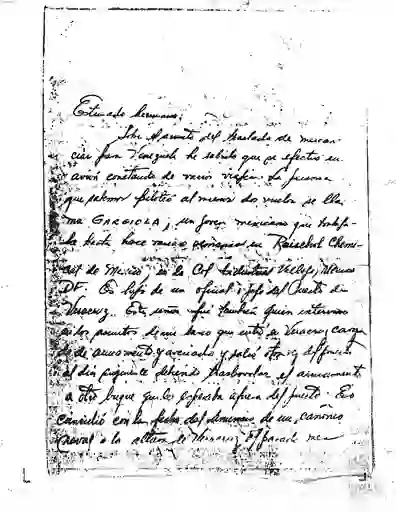 Estimado hermano:
Sobre el asunto del traslado de mercan
cias para Venezuela he sabido que se efectúa en
avión constante de varios viajes. La persona
que sabemos piloteó al menos dos vuelos se lla
ma GARGIOLA, un joven mexicano que trabaja
ba hasta hace varias semanas en Raischol Chemi
cal de Mexico, en la Col Industrial Vallejo, Mexico
DF. Es hijo de un oficial jefe del Puerto de
Veracruz. Este señor fué también quien intervino
en los asuntos de un barco que entró a Veracruz carga
do de armamento y salió
al día siguiente debiendo trasbordar el armamento
a otro buque que lo esperaba afuera del puerto. Eso
coincidió con la fecha del de un cañonero
naval a la altura de Veracruz el pasado mes